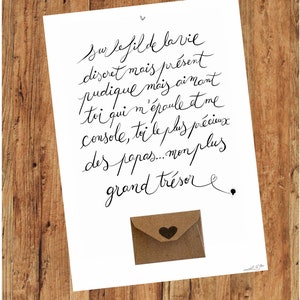 Sur le fil de la vie
discret mais présent
pudique mais aimant
toi qui m'épaule et me
console, toi le plus précieux
des papas... mon plus
grand trésor